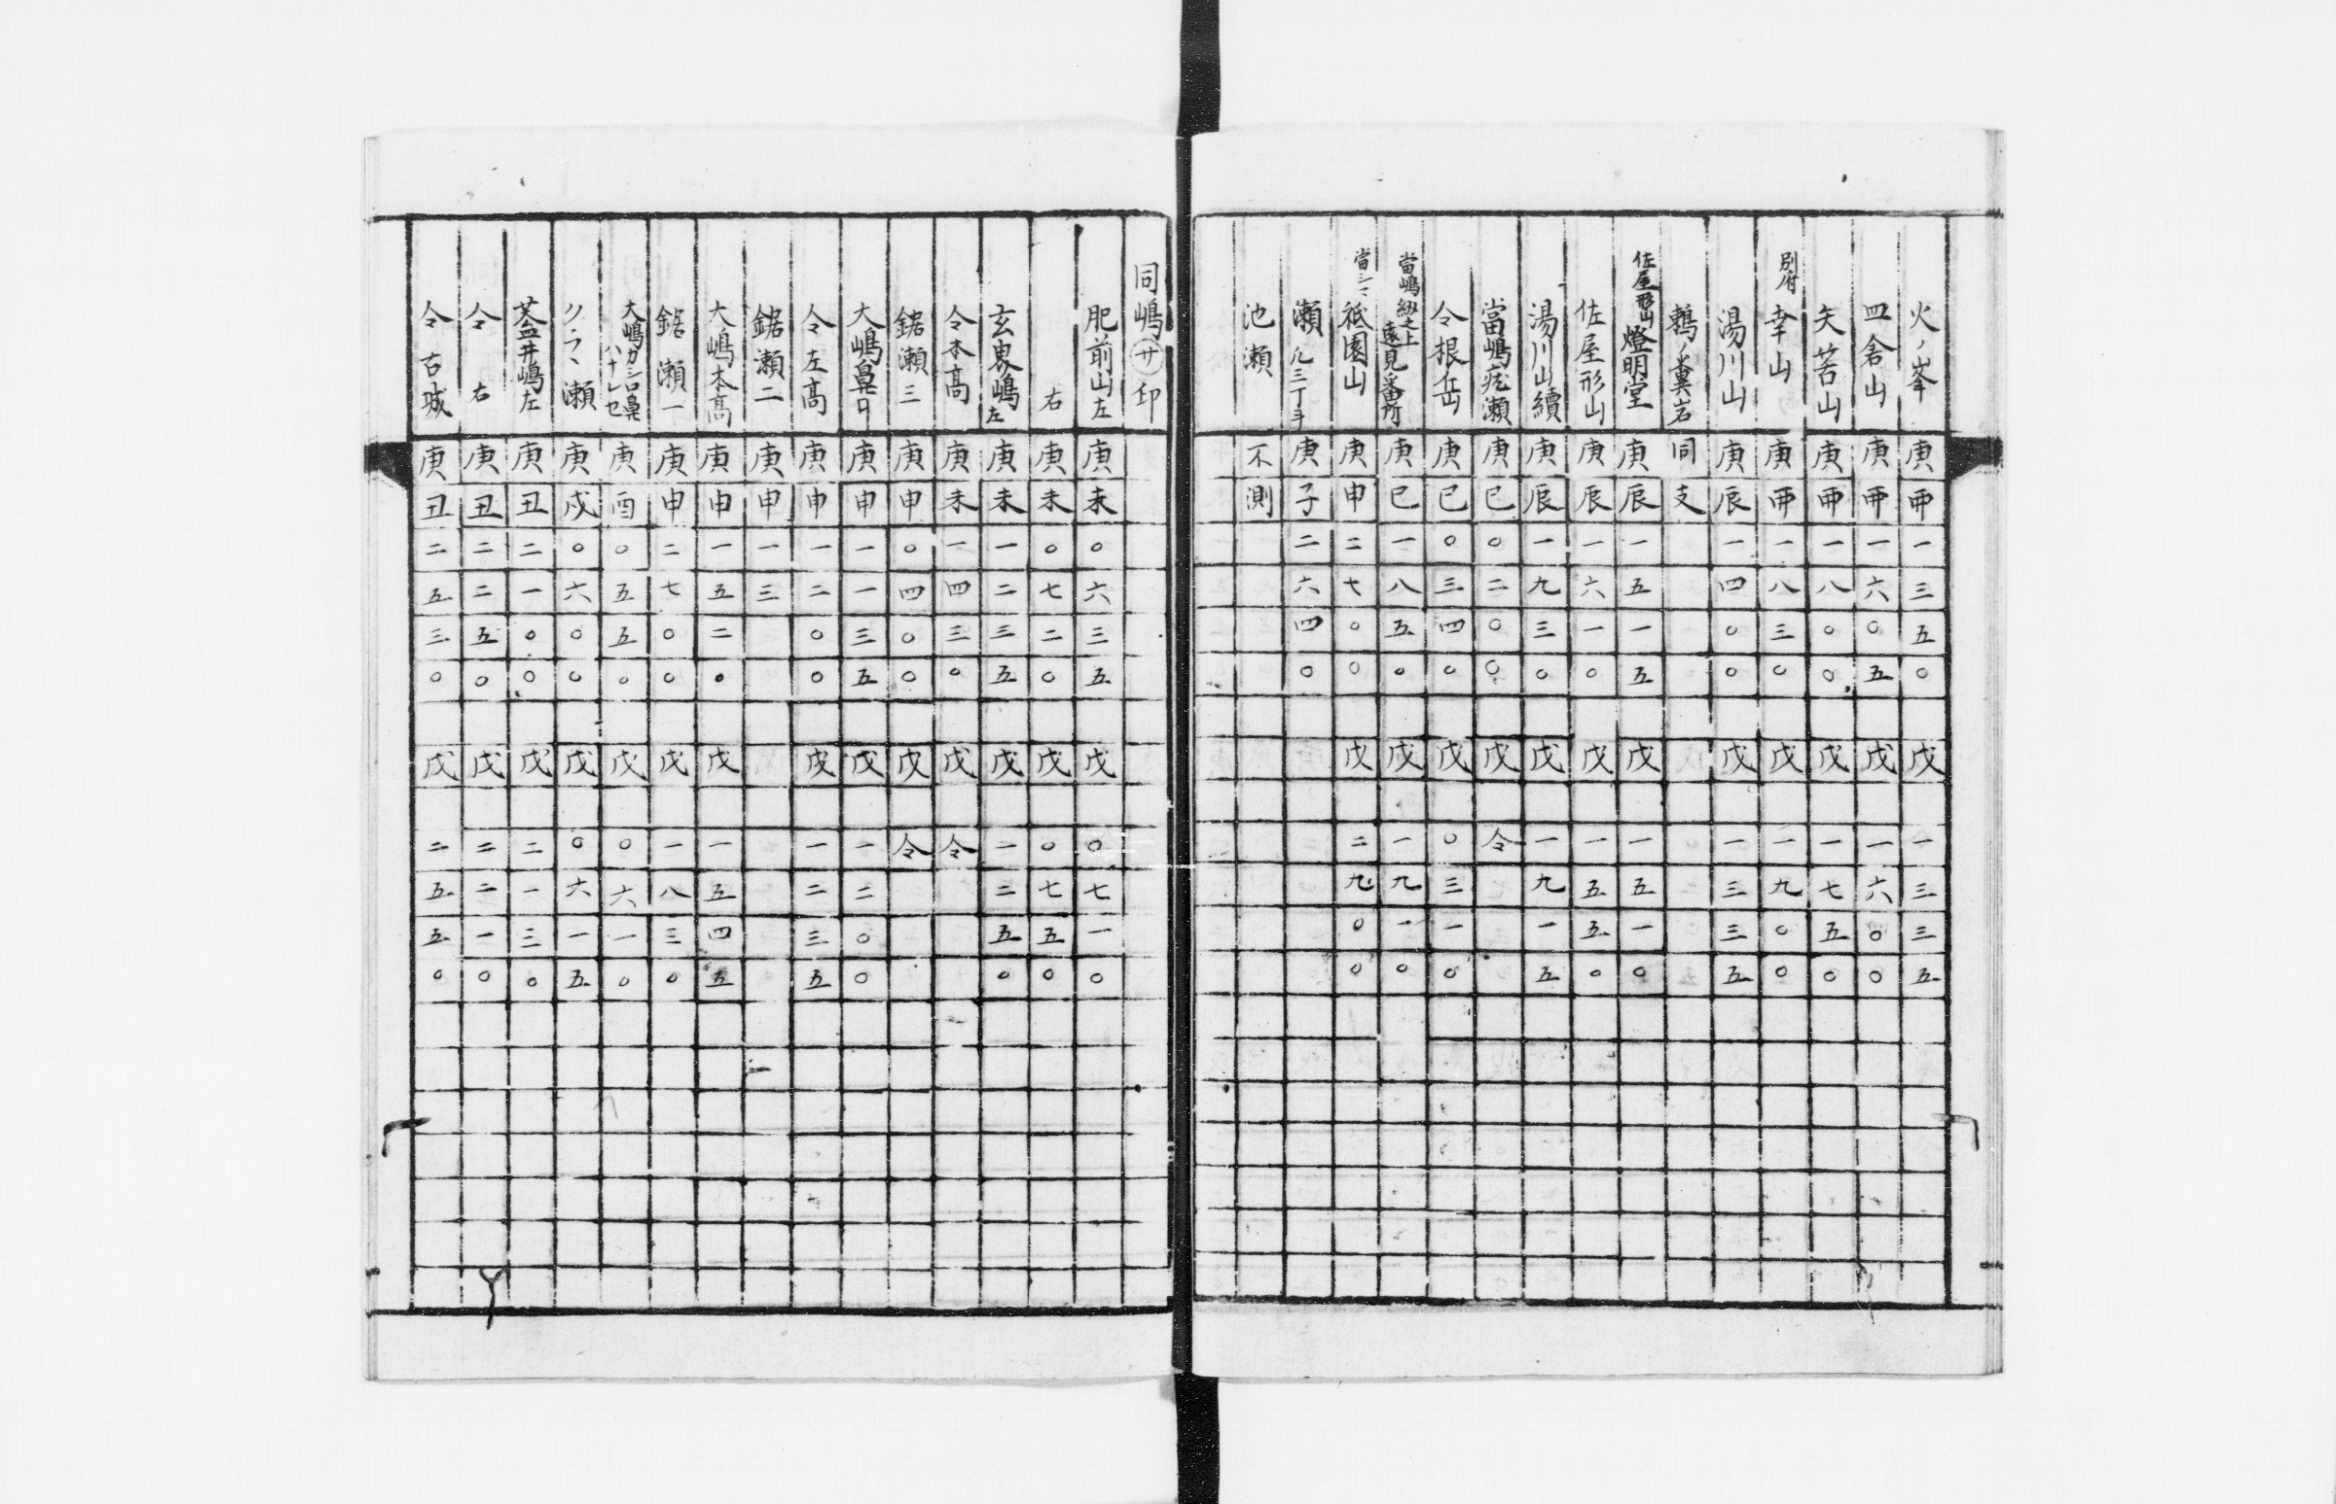 火ノ峯 庚 丣 一 三 五 〇 戊 一 三 三 五
四倉山 庚 丣 一 六 〇 五 戊 一 六 〇 〇
矢筈山 庚 丣 一 八 〇 〇 戊 一 七 五 〇
別府 幸山 庚 丣 一 八 三 〇 戊 一 九 〇 〇
湯川山 庚 辰 一 四 〇 〇 戊 一 三 三 五
鵜ノ糞岩 同 支
佐屋形山 燈明堂 庚 辰 一 五 一 五 戊 一 五 一 〇
佐屋形山 庚 辰 一 六 一 〇 戊 一 五 五 〇
湯川山續 庚 辰 一 九 三 〇 戊 一 九 一 五
當嶋疣瀬 庚 巳 〇 二 〇 〇 戊 仝
仝根岳 庚 巳 〇 三 四 〇 戊 〇 三 一 〇
當嶋 之上 遠見番所 庚 巳 一 八 五 〇 戊 一 九 一 〇
當シマ 祗園山 庚 申 二 七 〇 〇 戊 二 九 〇 〇
瀬 凡三丁斗 庚 子 二 六 四 〇
池瀬 不 測
同嶋㋚印
肥前山左 庚 未 〇 六 三 五 戊 〇 七 一 〇
右 庚 未 〇 七 二 〇 戊 〇 七 五 〇
玄界嶋左 庚 未 一 二 三 五 戊 一 二 五 〇
仝本高 庚 未 一 四 三 〇 戊 仝
鋸瀬三 庚 申 〇 四 〇 〇 戊 仝
大嶋鼻口 庚 申 一 一 三 五 戊 一 二 〇 〇
仝左高 庚 申 一 二 〇 〇 戊 一 二 三 五
鋸瀬二 庚 申 一 三
大嶋本高 庚 申 一 五 二 〇 戊 一 五 四 五
鋸瀬一 庚 申 二 七 〇 〇 戊 一 八 三 〇
大嶋カシロ鼻 ハナレセ 庚 酉 〇 五 五 〇 戊 〇 六 一 〇
クララ瀬 庚 戌 〇 六 〇 〇 戊 〇 六 一 五
葢井嶋左 庚 丑 二 一 〇 〇 戊 二 一 三 〇
仝 右 庚 丑 二 二 五 〇 戊 二 二 一 〇
仝 古城 庚 丑 二 五 三 〇 戊 二 五 五 〇